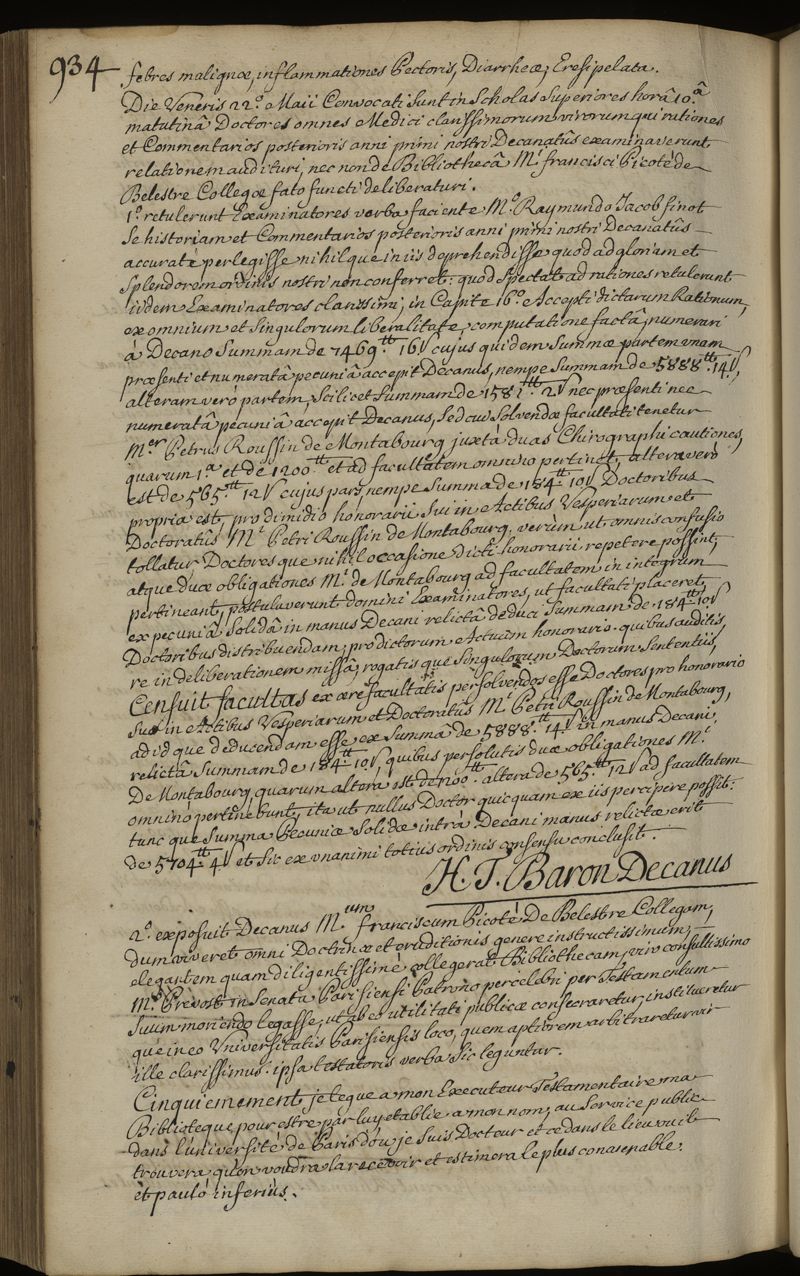 934
febres malignæ, inflammationes Pectoris, Diarrheæ, Eresipelata.
Die Veneris 22.º Maii Convocati Sunt in Scholas Superiores horâ 10.ª
matutinâ Doctores omnes Medici clarissimorum virorum qui rationes
et Commentarios posterioris anni primi nostri Decanatûs examinaverunt
relationem audituri, nec non de Bibliothecâ M.ⁱ francisci Picoté de
Belestre Collegæ fato functi deliberaturi.
1.º retulerunt Examinatores verba faciente M.º Raymundo Jacob finot
Se historiam et Commentarios posterioris anni primi nostri Decanatûs
accuratè perlegisse nihilque in iis deprehendisse quod ad gloriam et
Splendorem ordinis nostri non conferret: quod Spectat ad rationes retulerunt
iidem Examinatores clarissimi, in Capite 16.º Accepti dictarum Rationum,
ex omnium et Singulorum liberalitate, computatione factâ, numerari
à Decano Summam de 7469.ᵗᵗ 16 ſ cujus quidem Summæ partem unam
præsenti et numeratâ pecuniâ accepit Decanus, nempe Summam de 5888.ᵗᵗ 14 ſ,
alteram vero partem, Scilicet Summam de 1581.ᵗᵗ 2 ſ nec præsenti nec
numeratâ pecuniâ accepit Decanus, Sed cui Solvendæ facultati tenetur
M.ᵉʳ Petrus Roussin de Montabourg juxtà duas Chirographi cautiones,
quarum 1.ª et de 1200.ᵗᵗ et ad facultatem omnino pertinet, altera verò
est de 565.ᵗᵗ 12 ſ cujus pars, nempe Summa de 184.ᵗᵗ 10 ſ Doctoribus
propria est, pro dimidio honorarii Sui in Actibus Vesperiarum et
Doctoratûs M.ⁱ Petri Roussin de Montabourg. verùm ut omnis confusio
tollatur Doctoresque nihil occasione dicti honorarii repetere possint,
atque duæ obligationes M.ⁱ de Montabourg ad facultatem in integrum
pertineant, postulaverunt domini Examinatores, ut facultati placeret,
ex pecuniâ Solidâ in manus Decani relictâ deduci Summam de 184.ᵗᵗ 10 ſ
Doctoribus distribuendam, pro dictorum Actuum honorario. quibus auditis,
re in deliberationem missâ, rogatisque Singulorum Doctorum Sententiis,
Censuit facultas ex ære facultatis persolvendos esse Doctores pro honorario
Suo in Actibus Vesperiarum et Doctoratûs M.ⁱ Petri Roussin de Montabourg,
ad idque deducendam esse ex Summa de 5888.ᵗᵗ 14 ſ in manus Decani,
relictâ Summam de 184.ᵗᵗ 10 ſ, quibus persolutis duæ obligationes M.ⁱ
De Montabourg quarum altera est de 1200.ᵗᵗ altera de 565.ᵗᵗ 12 ſ ad facultatem
omninò pertinebunt, ita ut nullus Doctor quicquam ex iis percipere possit:
tunc que Summa Pecuniæ Solidæ intrà Decani manus relictæ erit
de 5704.ᵗᵗ 4 ſ et Sic ex unanimi totius ordinis consensu conclusit.
H. T. Baron Decanus
2.º exposuit Decanus M.ᵘᵐ franciscum Picoté De Belestre Collegam,
dum viveret omni Doctrinæ et eruditionis genere instructissimum,
elegantem quam diligentissimè collegerat Bibliothecam, viro consultissimo
M.º Prevost in Senatu Parisiensi Patrono percelebri per Testamentum
Suum moriendo legasse, ut ab eo utilitati publicæ consecraretur, institueretur
que in eo Universitatis Parisiensis loco, quem aptiorem arbitraretur vir
ille clarissimus. ipsa testatoris verba Sic leguntur.
Cinquiemement je legue a mon Executeur Testamentaire ma
Biblioteque pour estre par luy etablie a mon nom, au Service public
dans l'université de Paris dou je Suis Docteur et ce dans le lieu ou il
trouvera qu'on voudra la recevoir et estimera le plus convenable.
et paulò inferiùs.